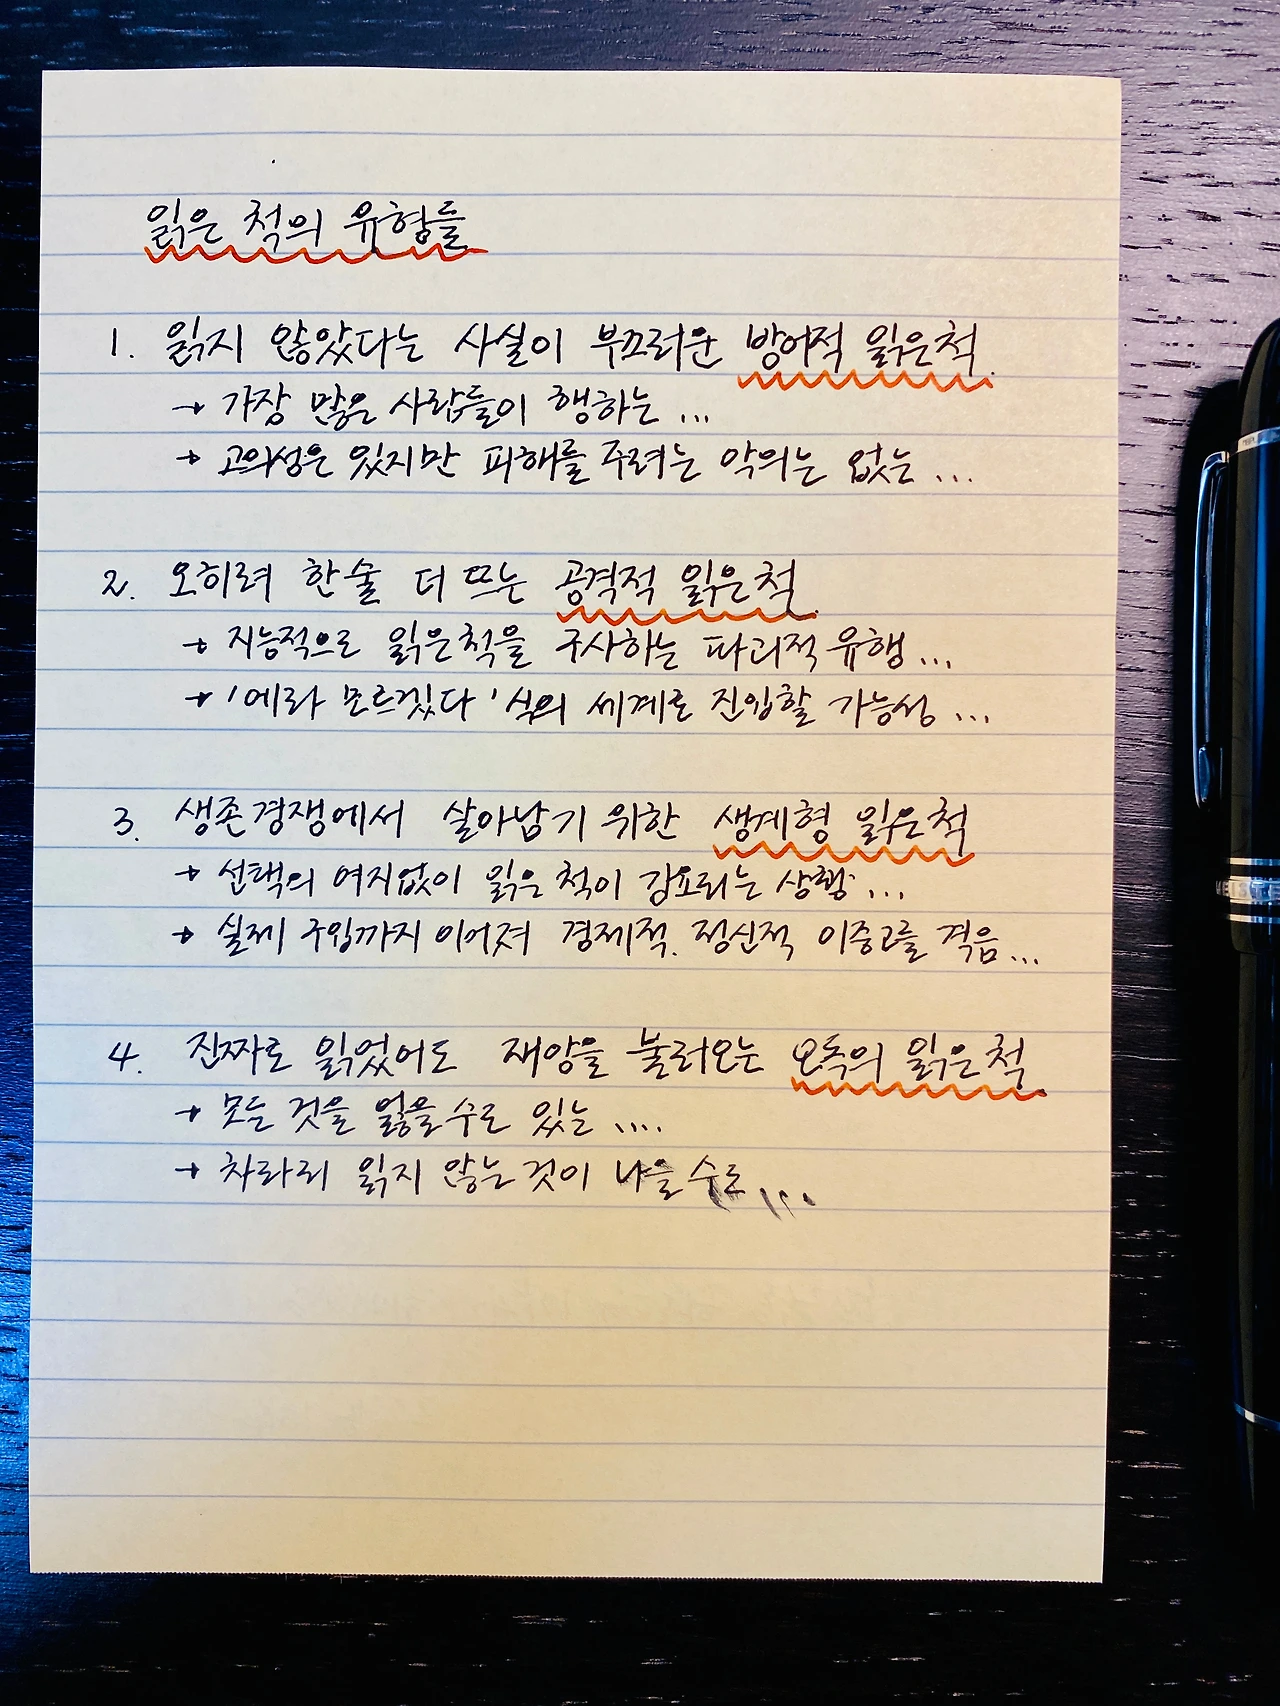 읽은 척의 유형들
1. 읽지 않았다는 사실이 부끄러운 방어적 읽은척.
→ 가장 많은 사람들이 행하는 ...
→ 고의성은 있지만 피해를 주려는 악의는 없는 ...
2. 오히려 한술 더 뜨는 공격적 읽은척.
→ 지능적으로 읽은척을 구사하는 파괴적 유형...
→ '에라 모르겠다' 식의 세계로 진입할 가능성 ...
3. 생존경쟁에서 살아남기 위한 생계형 읽은척
→ 선택의 여지없이 읽은 척이 강요되는 상황 ...
→ 실제 구입까지 이어져 경제적. 정신적 이중고를 겪음...
4. 진짜로 읽었어도 재앙을 불러오는 오독의 읽은척.
→ 모든 것을 잃을 수도 있는 ....
→ 차라리 읽지 않는 것이 나을 수도...